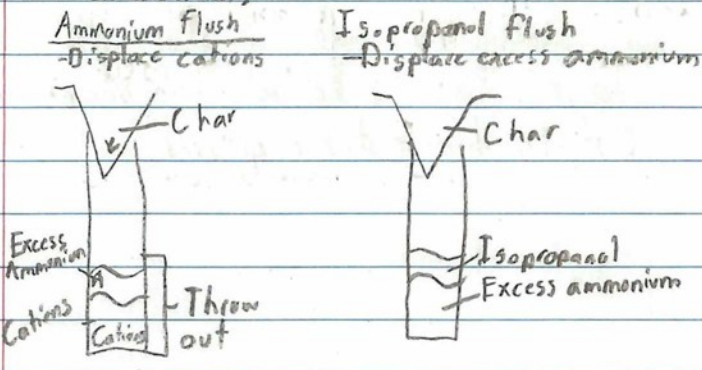 Ammonium flush
-Displace cations
Char
Excess
Ammonium
A
Cations
Cations
Throw
out
Isopropanol flush
-Displace excess ammonium
Char
Isopropanol
Excess ammonium